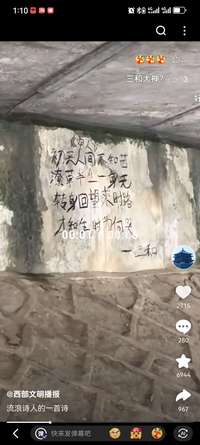 1:10
三和大神?
初来人间不知苦
潦草半生一身无
转身回望来时路
才知生时为何哭
一三和
2915
280
6944
967
@西部文明播报
流浪诗人的一首诗
弹 快来发弹幕吧